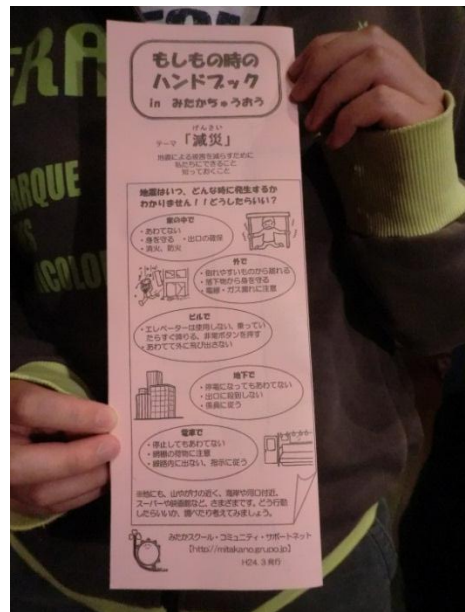 もしもの時の
ハンドブック
in みたかちゅうおう
げんさい
テーマ「減災」
地震による被害を減らすために
私たちにできること
知っておくこと
地震はいつ、どんな時に発生するか
わかりません!!どうしたらいい?
家の中で
・あわてない
・身を守る ・出口の確保
・消火、防火
外で
・倒れやすいものから離れる
・落下物から身を守る
・電線・ガス漏れに注意
ビルで
・エレベーターは使用しない、乗ってい
たらすぐ降りる、非常ボタンを押す
・あわてて外に飛び出さない
地下で
・停電になってもあわてない
・出口に殺到しない
・係員に従う
電車で
・停止してもあわてない
・網棚の荷物に注意
・線路内に出ない、指示に従う
※他にも、山やがけの近く、海岸や河口付近、
スーパーや映画館など、さまざまです。どう行動
したらいいか、調べたり考えてみましょう。
みたかスクール・コミュニティ・サポートネット
[http://mitakano.gr.jp]
H24.3発行
FRA
ARQUE
COLO